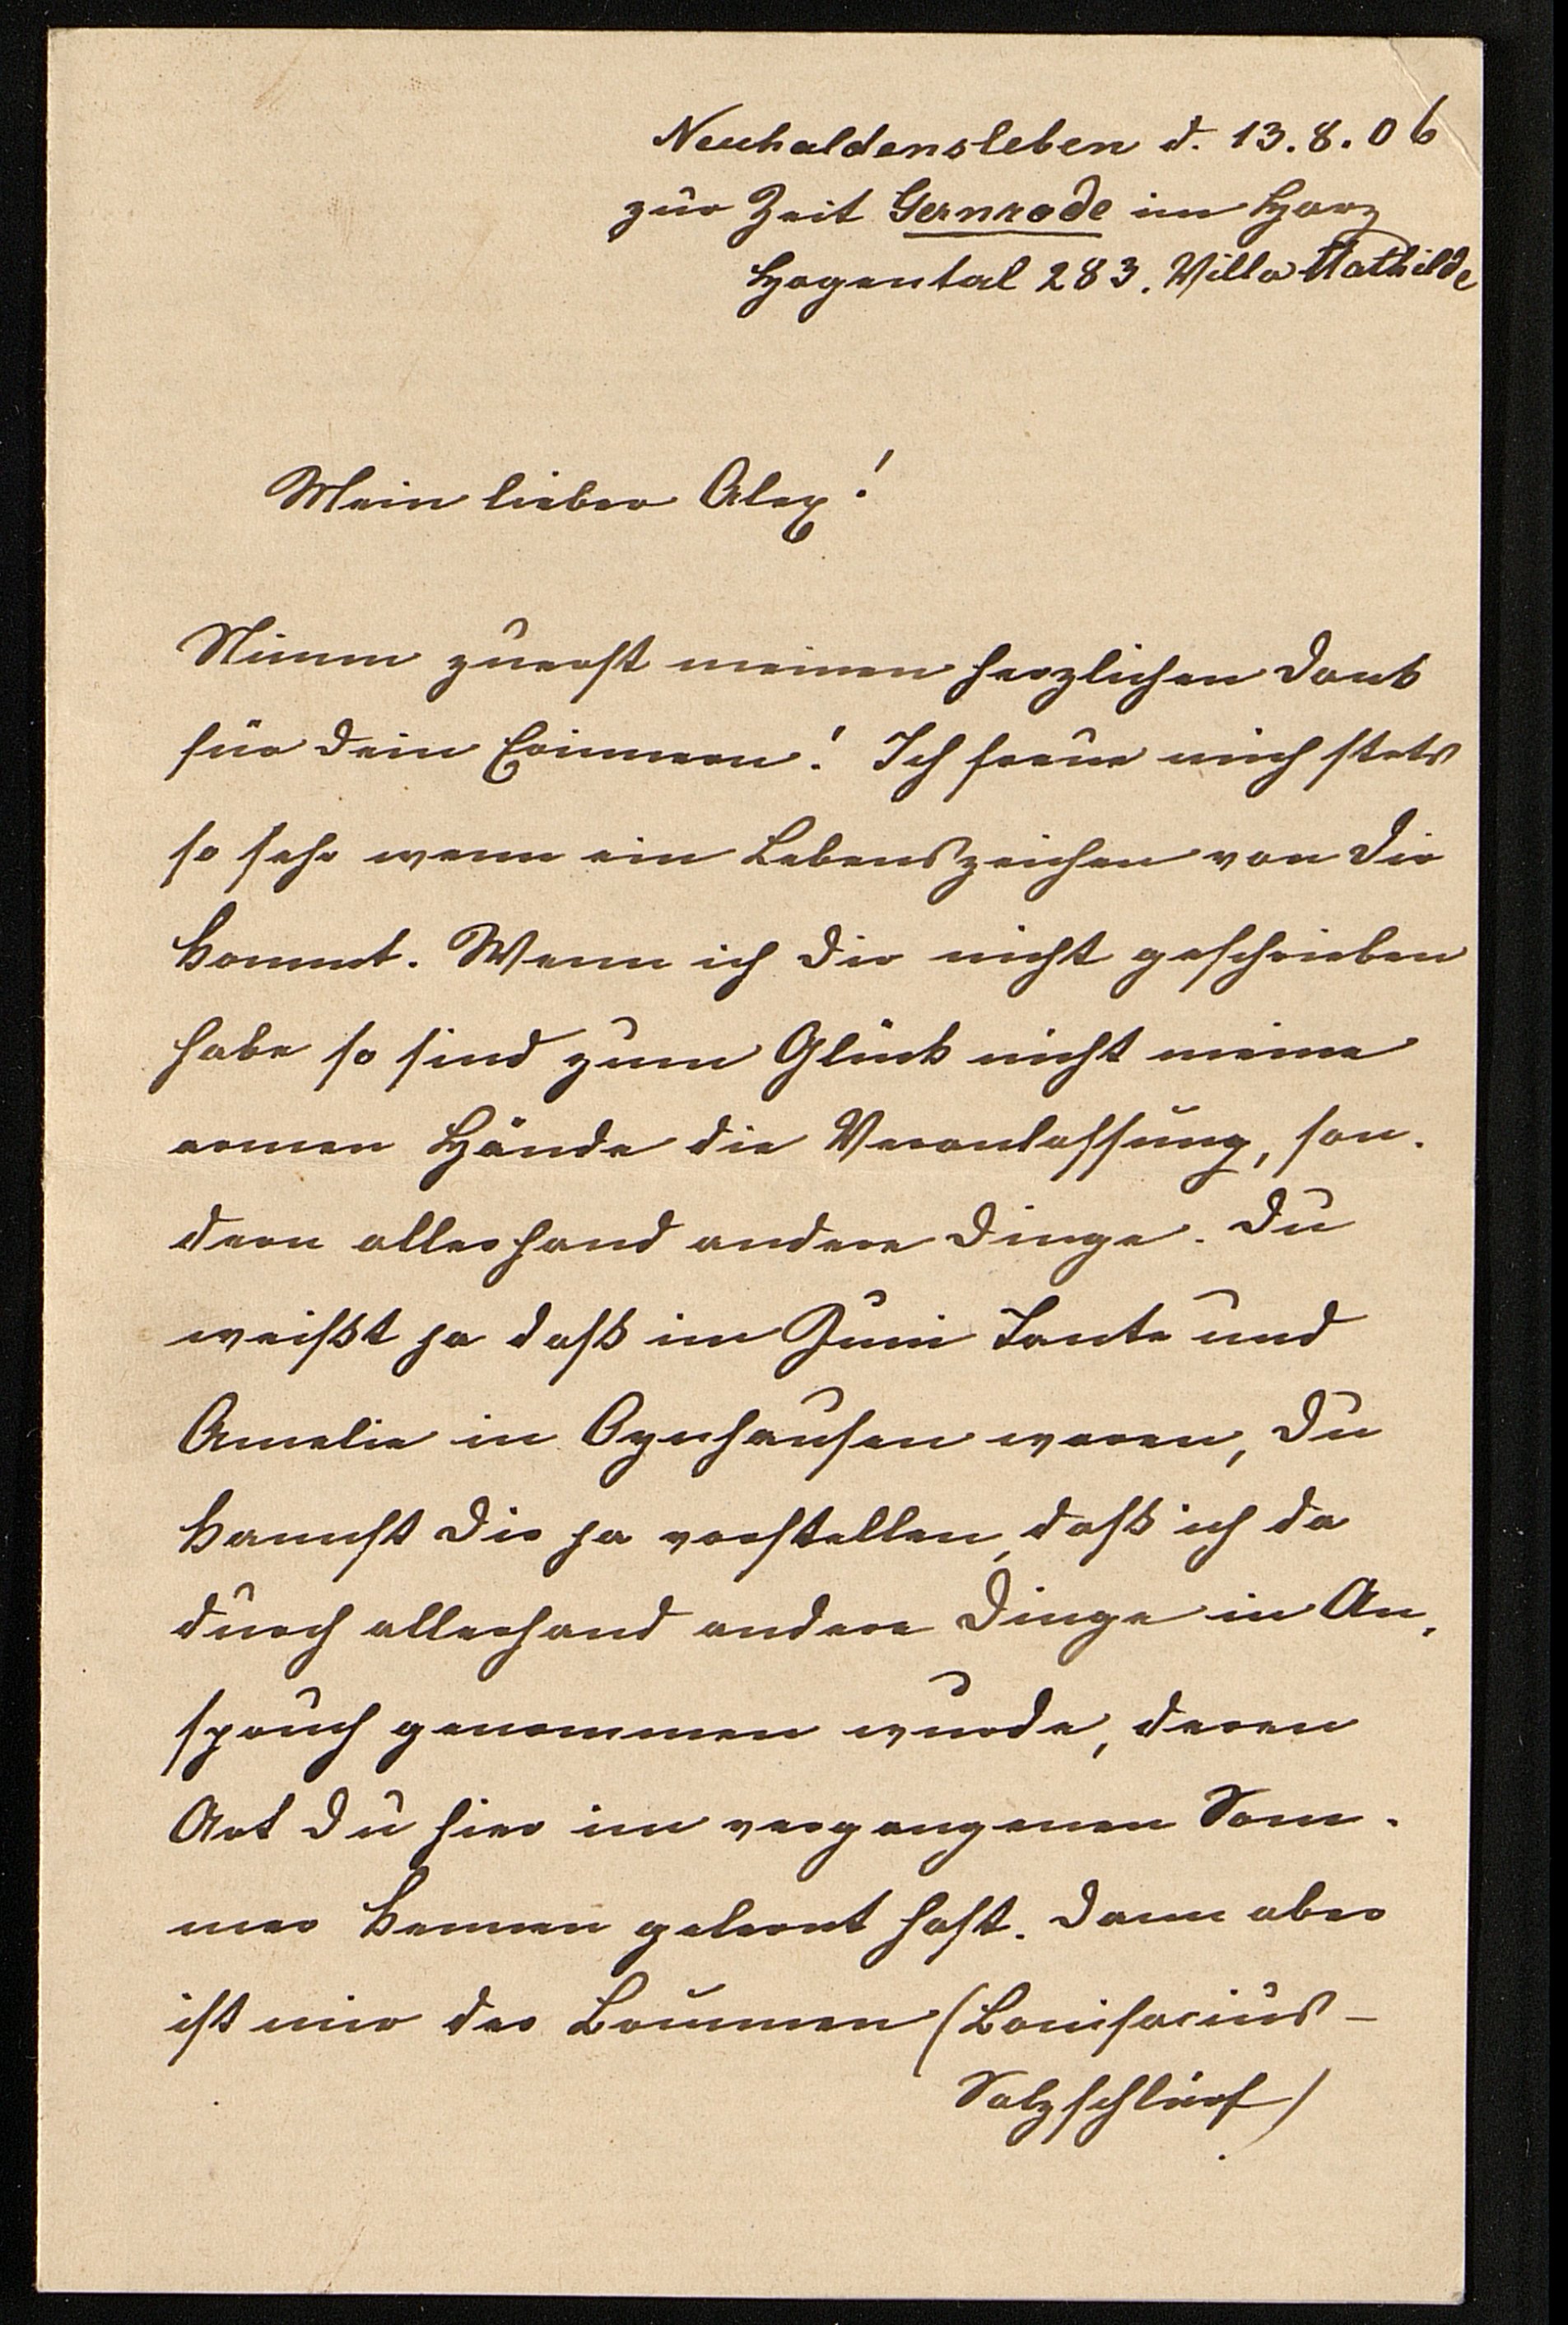 Neuhaldensleben d. 13.8.06
zur Zeit Gernrode im Harz
Hagental 283. Villa Mathilde
Mein lieber Alex!
Nimm zuerst meinen herzlichen Dank
für Dein Erinnern! Ich freue mich stets
so sehr wenn ein Lebenszeichen von Dir
kommt. Wenn ich Dir nicht geschrieben
habe so sind zum Glück nicht meine
armen Hände die Veranlassung, son-
dern allerhand andere Dinge. Du
weißt ja daß im Juni Tante und
Amelie in Oynhausen waren, Du
kannst Dir ja vorstellen, daß ich da
durch allerhand andere Dinge in An-
spruch genommen wurde, deren
Art Du hier im vergangenen Som-
mer kennen gelernt hast. Dann aber
ist mir der Brunnen (Bonifacius-
Salzschlirf)